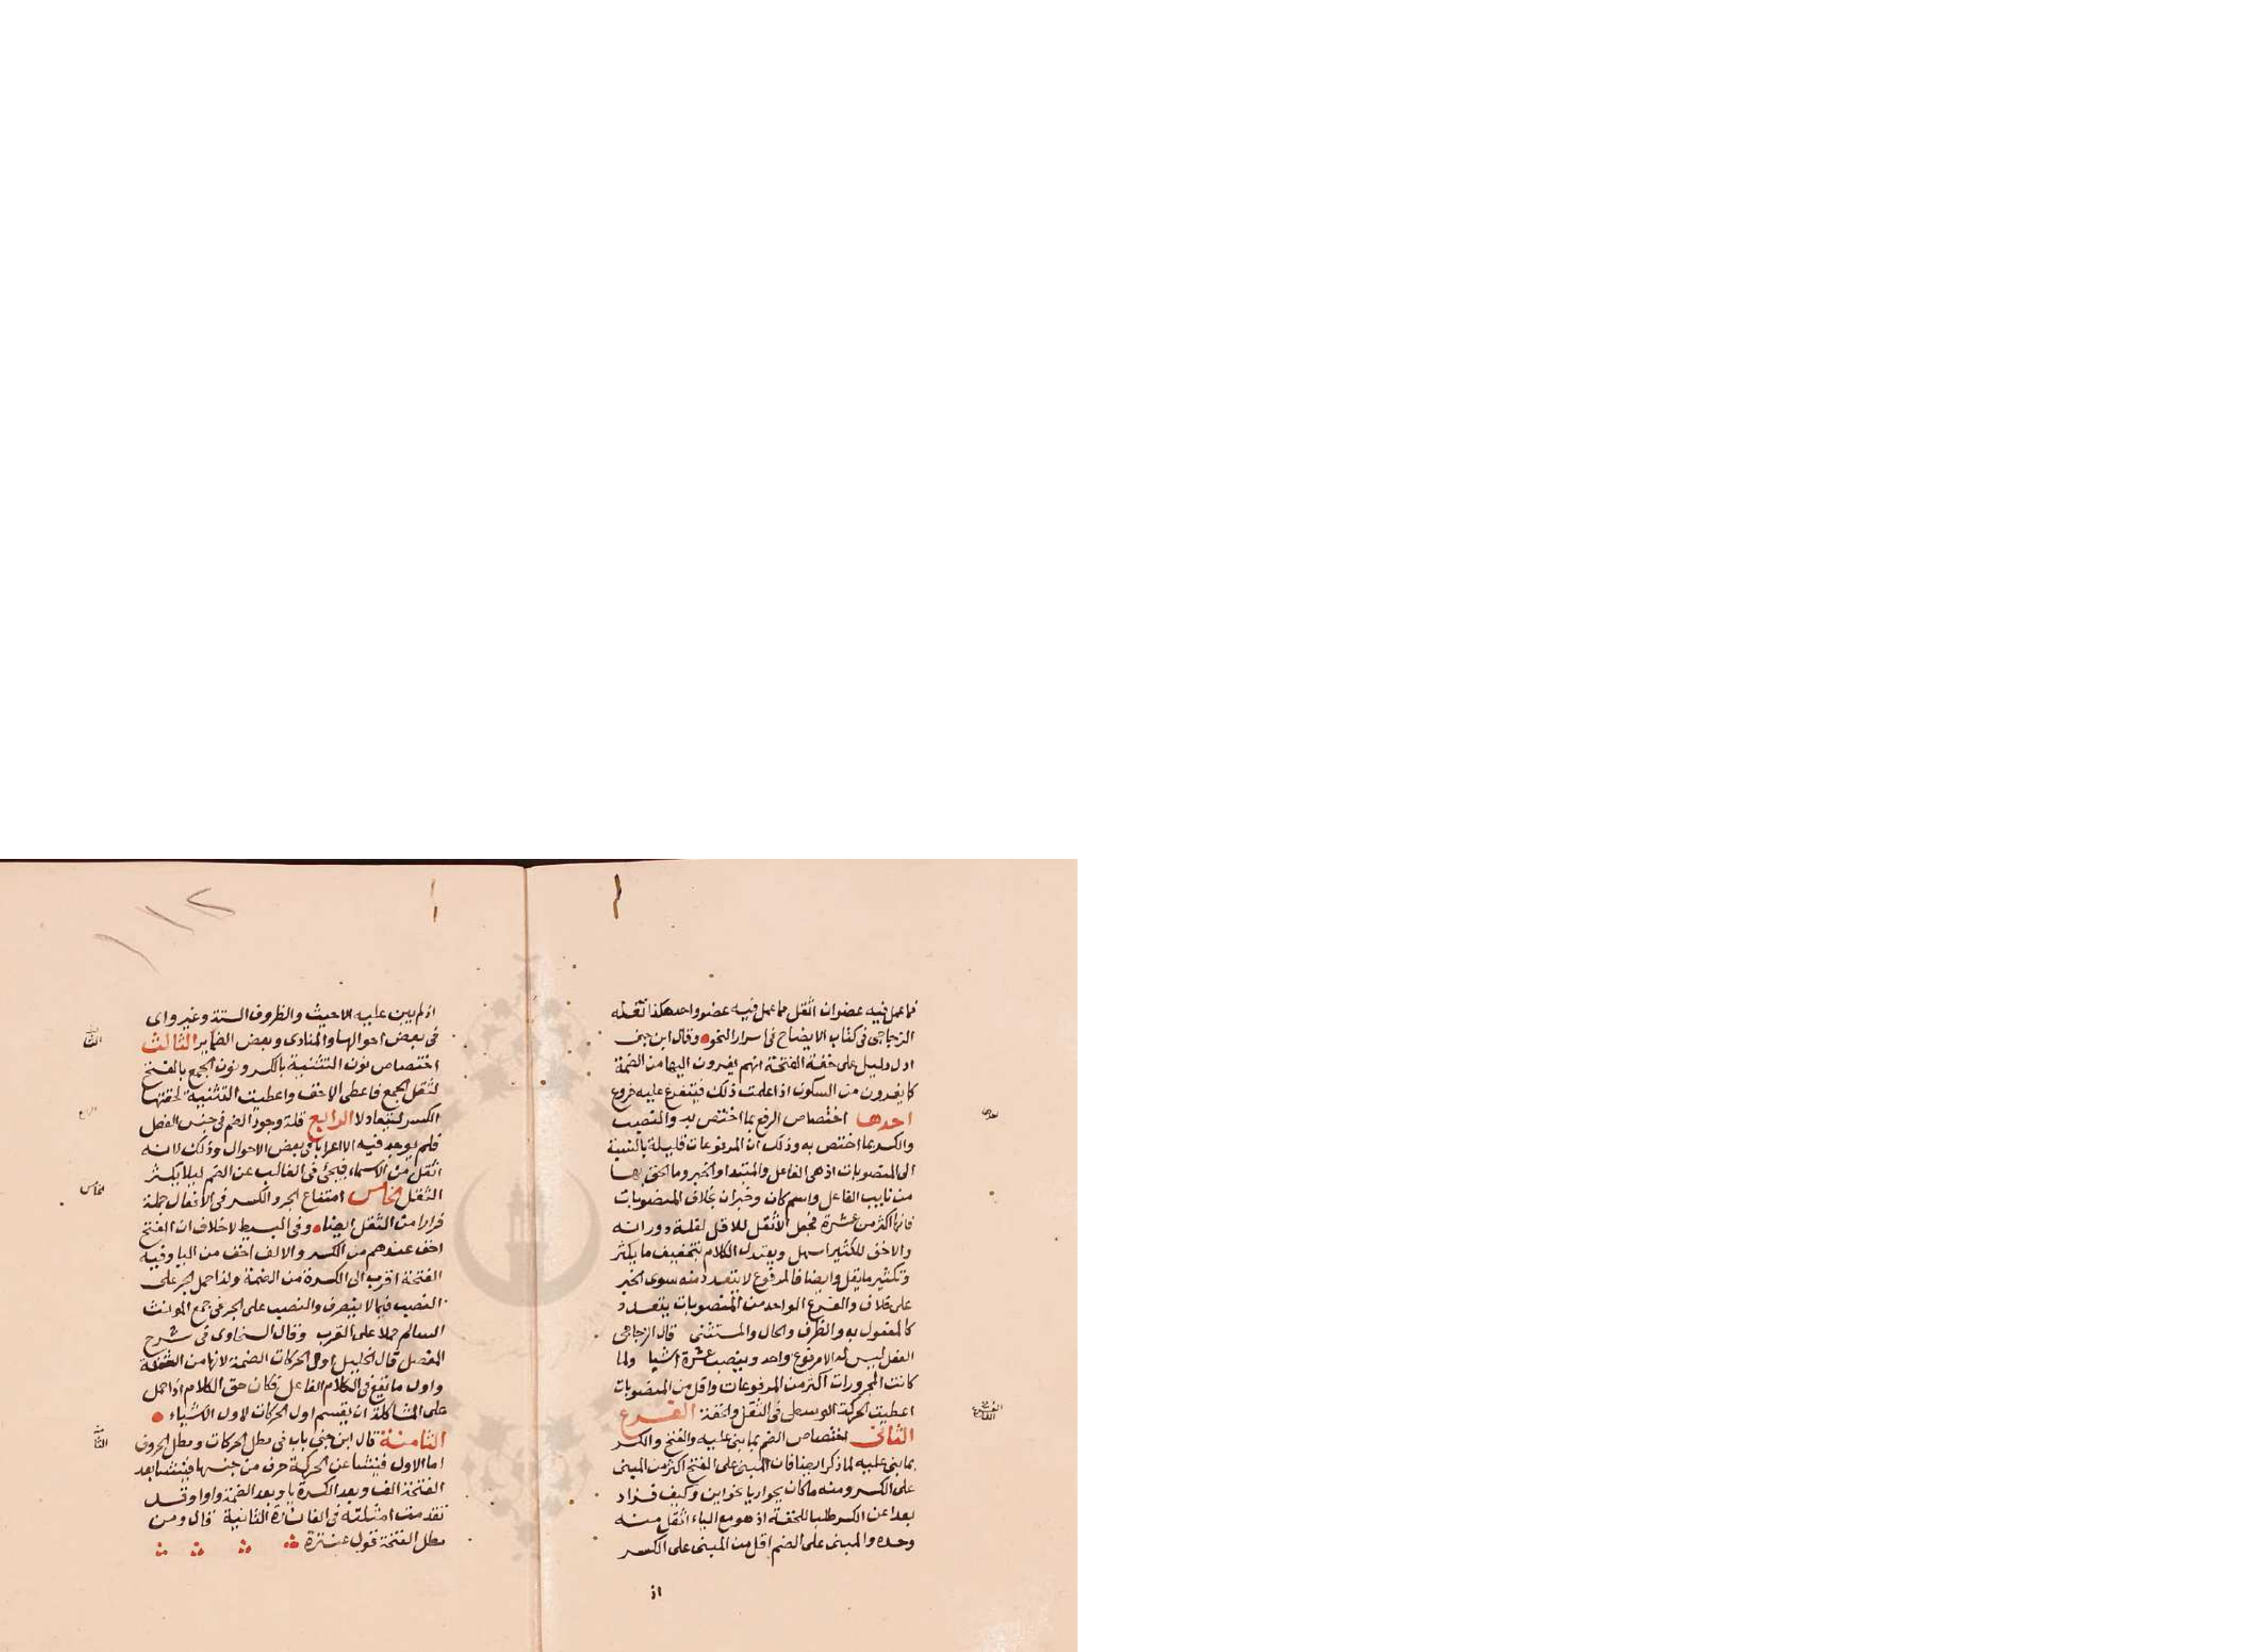 فما عمل فيه عضوان اثقل مما عمل فيه عضو واحد هكذا نقله
الزجاجى فى كتاب الايضاح فى اسرار النحو وقال ابن جنى
ادل دليل على خفة الفتحة انهم يفرون اليها من الضمة
كما يفرون من السكون اذا علمت ذلك فيتفرع عليه فروع
احدها اختصاص الرفع بما اختص به والنصب
والكسر بما اختص به وذلك ان المرفوعات قليلة بالنسبة
الى المنصوبات اذ هى الفاعل والمبتدا والخبر وما الحق بها
من نايب الفاعل واسم كان وخبر ان بخلاف المنصوبات
فانها اكثر من عشرة فجعل الاثقل للاقل لقلة دورانه
والاخف للكثير ليسهل ويعتدل الكلام بتخفيف ما يكثر
وتكثير ما يقل وايضا فالمرفوع لا يتعدد منه سوى الخبر
على خلاف والفرع الواحد من المنصوبات يتعدد
كالمفعول به والظرف والحال والمستثنى قال الزجاجى
الفعل ليس له الا مرفوع واحد وينصب عشرة اشيا ولما
كانت المجرورات اكثر من المرفوعات واقل من المنصوبات
اعطيت الحركة الوسطى فى الثقل والخفة الفرع
الثانى اختصاص الضم بما بنى عليه والفتح والكسر
بما بنى عليه لما ذكر ايضا فان المبنى على الفتح اكثر من المبنى
على الكسر ومنه ما كان بجوار يا نحو اين وكيف فزاد
بعدا عن الكسر طلبا للخفة اذ هو مع الياء اثقل منه
وحده والمبنى على الضم اقل من المبنى على الكسر
اذ
احدها
الفرع الثانى
١١٢
اذ لم يبن عليه الا حيث والظروف الستة وغير واى
فى بعض احوالها والمنادى وبعض الضماير الثالث
اختصاص نون التثنية بالكسر ونون الجمع بالفتح
لثقل الجمع فاعطى الاخف واعطيت التثنية لخفتها
الكسر ليتعادلا الرابع قلة وجود الضم فى جنس الفعل
فلم يوجد فيه الا اعرابا فى بعض الاحوال وذلك لانه
اثقل من الاسماء فيجئ فى الغالب عن الضم ليلا يكثر
الثقل الخامس امتناع الجر والكسر فى الافعال جملة
فرارا من الثقل ايضا وفى البسيط لا خلاف ان الفتح
اخف عندهم من الكسر والالف اخف من اليا وفيه
الفتحة اقرب الى الكسرة من الضمة ولذا حمل الجر على
النصب فيما لا ينصرف والنصب على الجر فى جمع المونث
السالم حملا على القرب وقال السخاوى فى شرح
المفصل قال الخليل اول الحركات الضمة لانها من الشفة
واول ما يقع فى الكلام الفاعل فكان حق الكلام اذا حمل
على المشاكلة ان يقسم اول الحركات لاول الاشياء
الثامنة قال ابن جنى باب فى مطل الحركات ومطل الحروف
اما الاول فينشا عن الحركة حرف من جنسها فينشا بعد
الفتحة الف وبعد الكسرة يا وبعد الضمة واوا وقد
تقدمت امثلته فى الفائدة الثانية قال ومن
مطل الفتحة قول عنترة
الثالث
الرابع
الخامس
الثامنة